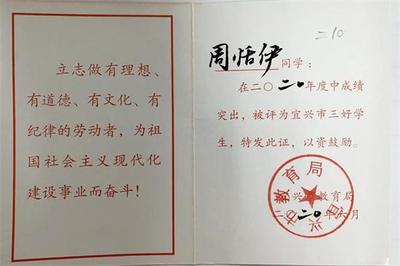 立志做有理想、
有道德、有文化、有
纪律的劳动者，为祖
国社会主义现代化
建设事业而奋斗！
二10
周恬伊同学：
在二〇二〇年度中成绩
突出，被评为宜兴市三好学
生，特发此证，以资鼓励。
兴 教育局
二〇 月
宜兴市教育局